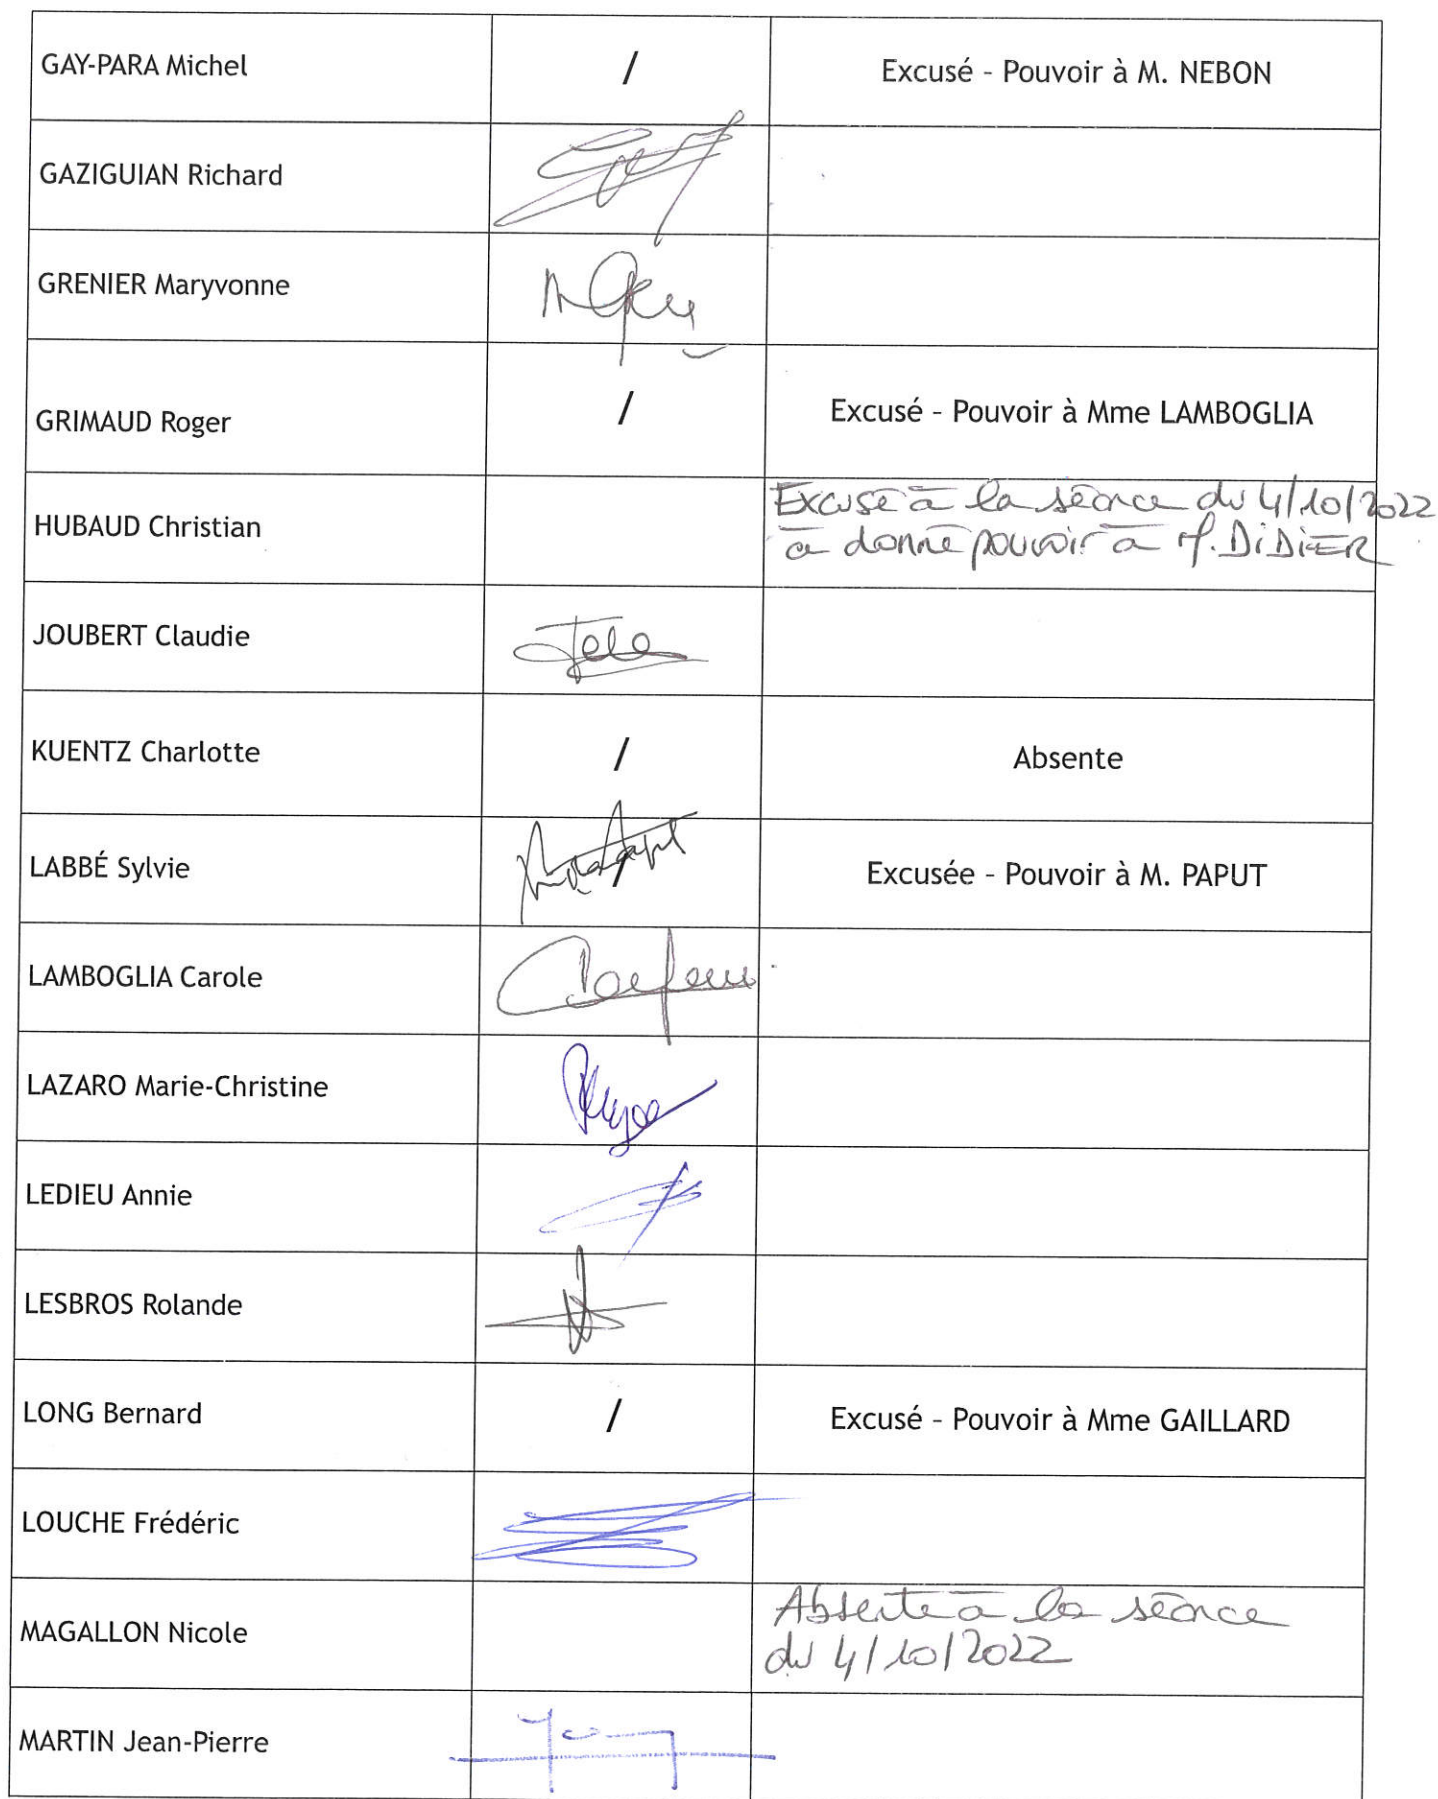 GAY-PARA Michel / Excusé - Pouvoir à M. NEBON
GAZIGUIAN Richard
GRENIER Maryvonne
GRIMAUD Roger / Excusé - Pouvoir à Mme LAMBOGLIA
HUBAUD Christian Excusé à la séance du 4/10/2022
a donné pouvoir à M. DIDIER
JOUBERT Claudie
KUENTZ Charlotte / Absente
LABBÉ Sylvie / Excusée - Pouvoir à M. PAPUT
LAMBOGLIA Carole
LAZARO Marie-Christine
LEDIEU Annie
LESBROS Rolande
LONG Bernard / Excusé - Pouvoir à Mme GAILLARD
LOUCHE Frédéric
MAGALLON Nicole Absente à la séance
du 4/10/2022
MARTIN Jean-Pierre